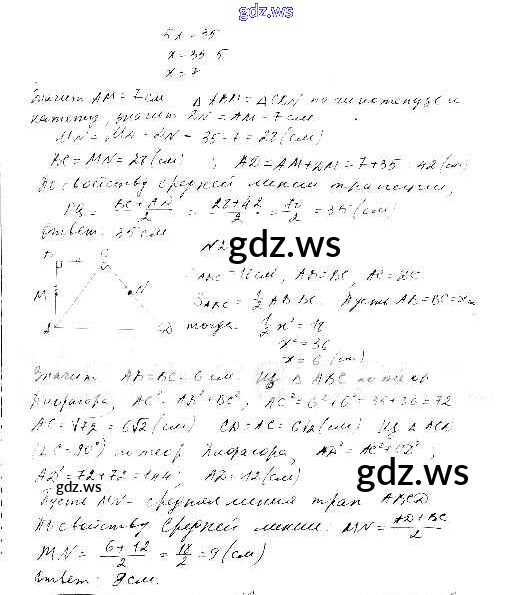 gdz.ws
5x=35
x=35:5
x=7
Значит AM=7см △ABM=△CDN по гипотенузе и
катету, значит DN=AM=7см
MN=MD-DN=35-7=28(см)
BC=MN=28(см), AD=AM+DM=7+35=42(см)
По свойству средней линии трапеции,
PQ=(BC+AD)/2=(28+42)/2=70/2=35(см)
Ответ: 35см
N2
gdz.ws
B C
S ABC=18см, AB=BC, AC=
M N
S ABC=1/2 AB·BC. Пусть AB=BC=x,
A D
тогда 1/2 x²=18
x²=36
x=6(см)
Значит AB=BC=6см. Из △ABC по теор
Пифагора, AC²=AB²+BC², AC²=6²+6²=36+36=72
AC=√72=6√2(см) CD=AC=6√2(см) Из △ACD
(∠C=90°) по теор Пифагора, AD²=AC²+CD²;
AD²=72+72=144; AD=12(см)
gdz.ws
gdz.ws
Пусть MN- средняя линия трап ABCD
По свойству средней линии: MN=(AD+BC)/2
MN=(6+12)/2=18/2=9(см)
Ответ: 9см.